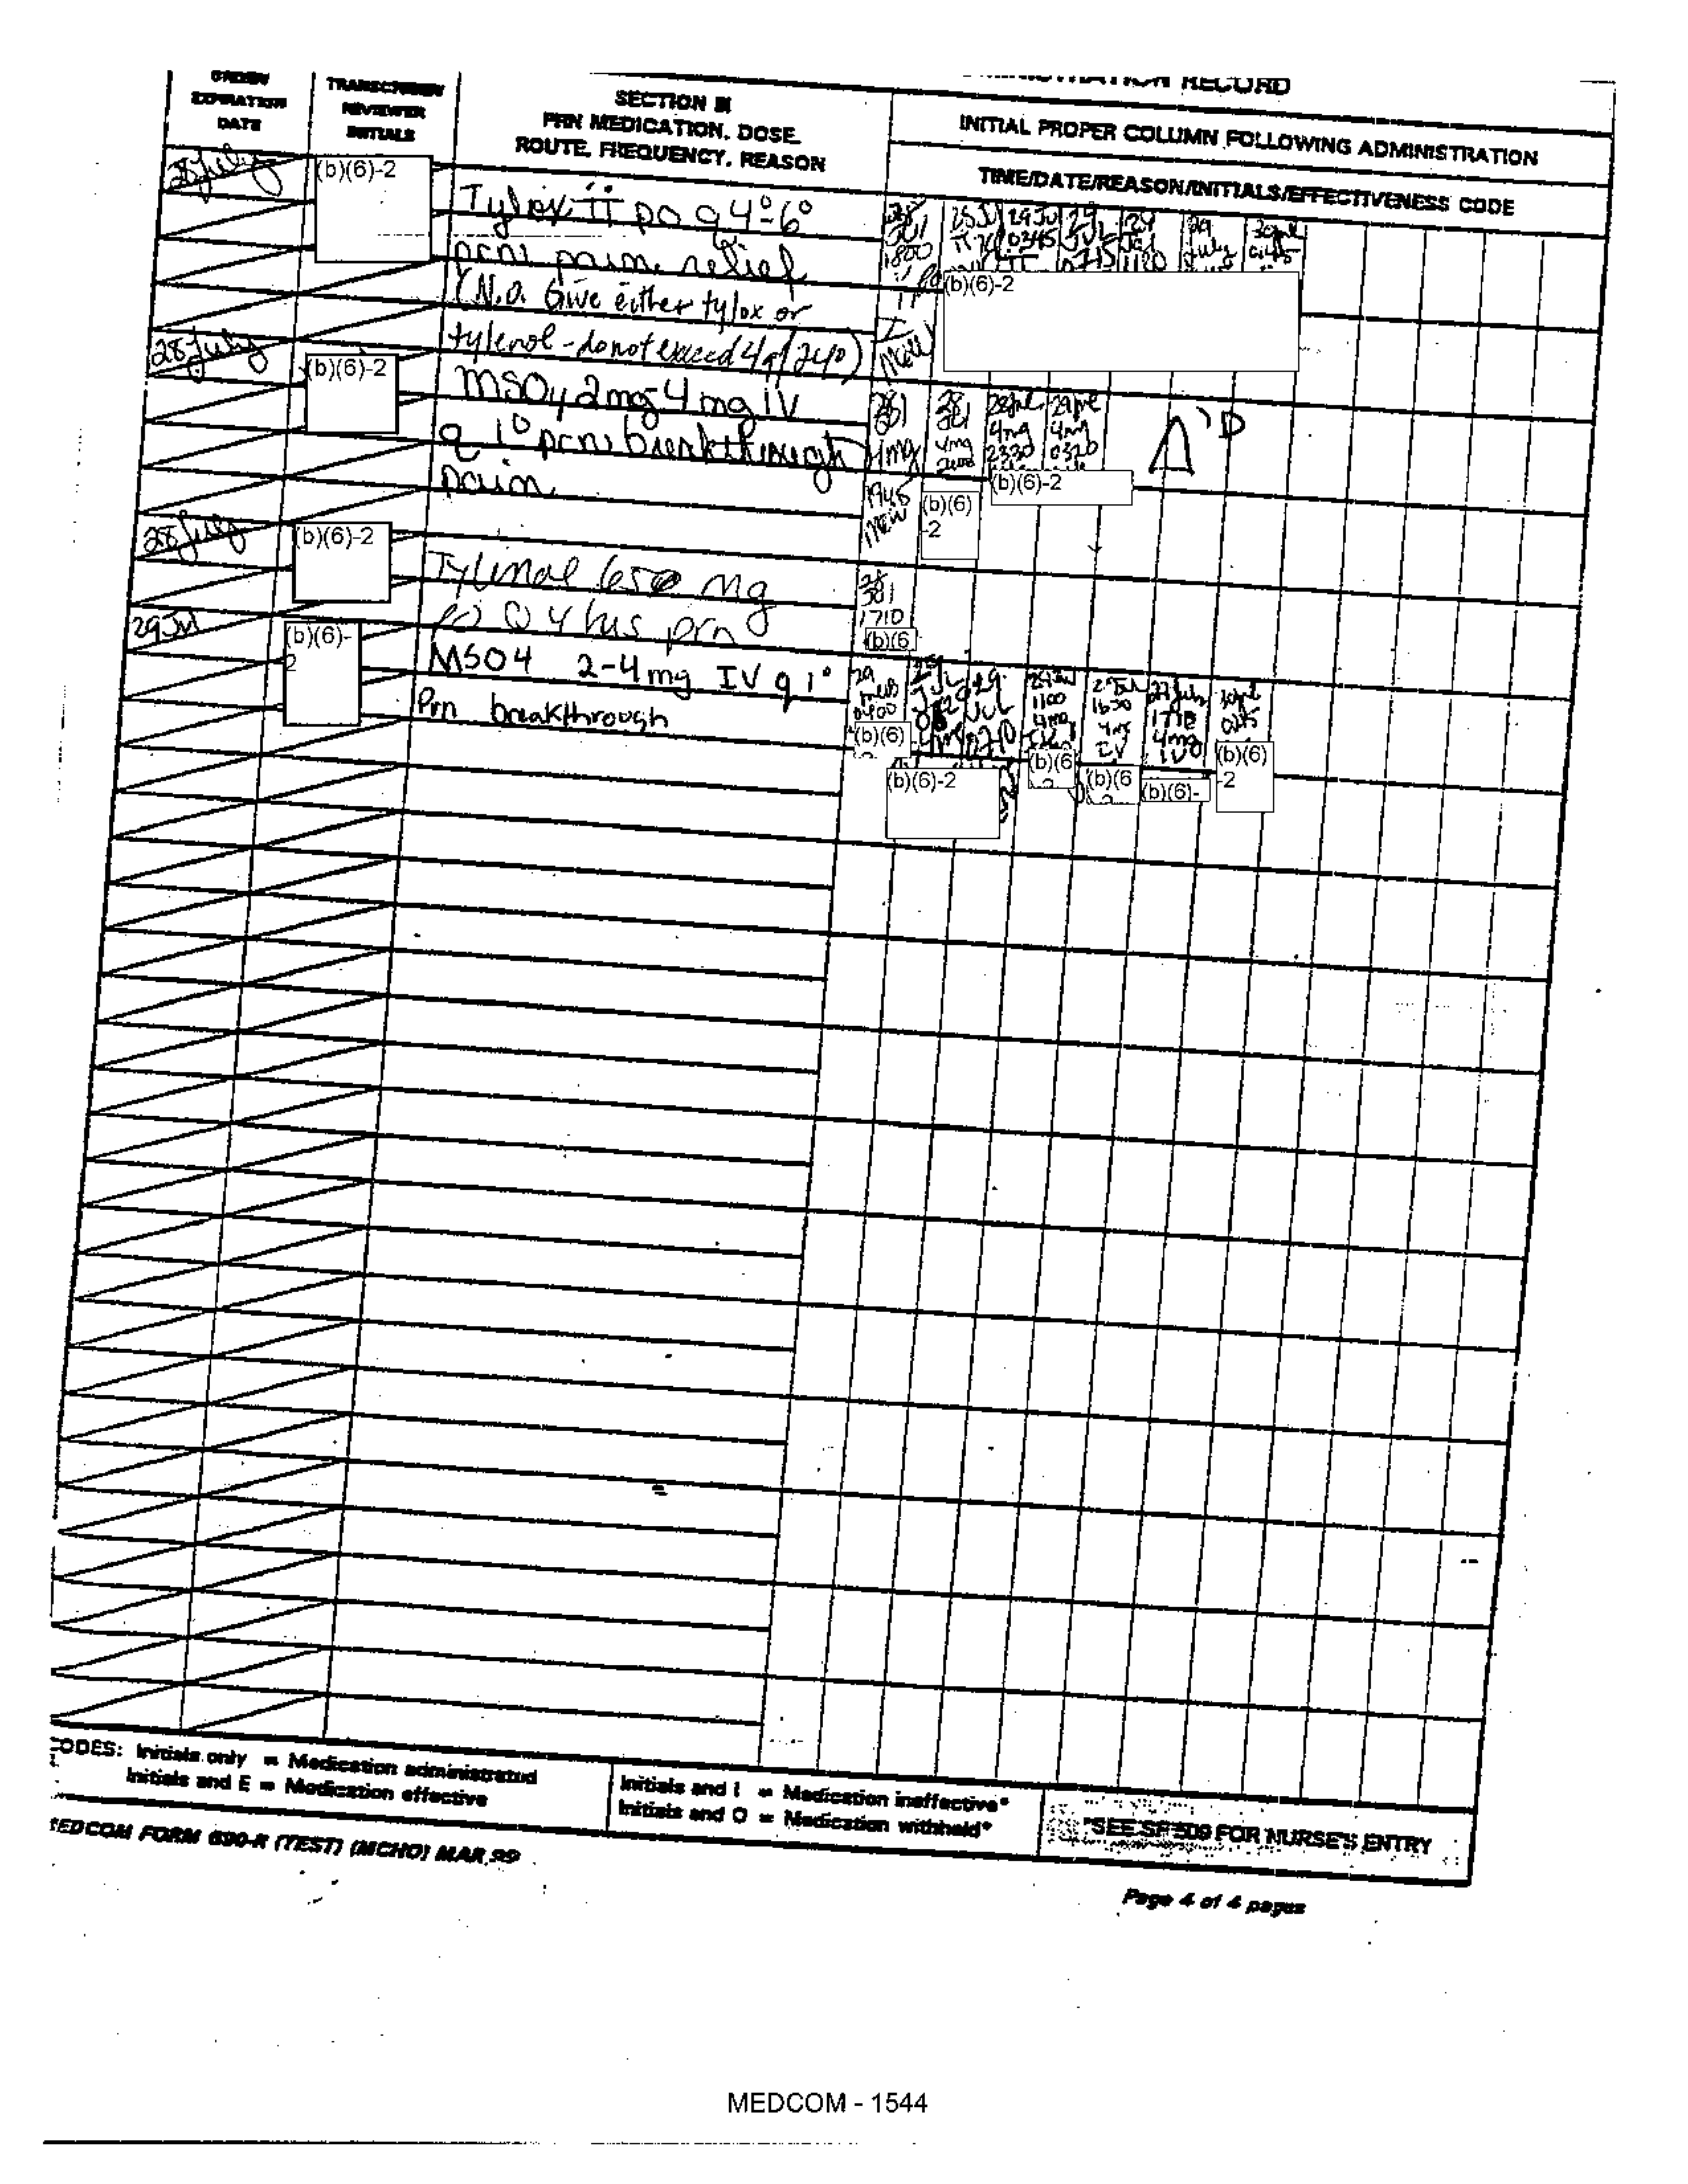 ORDER
EXPIRATION
DATE
TRANSCRIBER
REVIEWER
INITIALS
SECTION III
PRN MEDICATION, DOSE,
ROUTE, FREQUENCY, REASON
ADMINISTRATION RECORD
INITIAL PROPER COLUMN FOLLOWING ADMINISTRATION
TIME/DATE/REASON/INITIALS/EFFECTIVENESS CODE
28 July
(b)(6)-2
Tylox ii po q 4°-6°
prn pain relief
(N.O. Give either tylox or
tylenol - do not exceed 4g/24°)
28 Jul 1800
29 Jul 0345
29 JUL 0715
29 Jul 1120
29 July
30 Jul 0145
(b)(6)-2
28 July
(b)(6)-2
MSO4 2mg-4mg IV
q 1° prn breakthrough
pain
28 Jul 4mg 1945
28 Jul 4mg
28 Jul 4mg 2330
29 Jul 4mg 0320
(b)(6)-2
(b)(6)-2
28 July
(b)(6)-2
Tylenol 650 mg
po Q 4 hrs prn
28 Jul 1710
(b)(6)
29 Jul
(b)(6)-2
MSO4 2-4 mg IV q 1°
Prn breakthrough
29 0400
29 JUL 0710
29 Jul 1100 4mg
29 Jul 1630 4mg IV
29 July 1710 4mg
30 Jul
(b)(6)
(b)(6)-2
(b)(6
(b)(6
(b)(6)-
(b)(6)-2
CODES: Initials only = Medication administrated
Initials and E = Medication effective
Initials and I = Medication ineffective*
Initials and O = Medication withheld*
*SEE SF 509 FOR NURSE'S ENTRY
MEDCOM FORM 690-R (TEST) (MCHO) MAR 99
Page 4 of 4 pages
MEDCOM - 1544